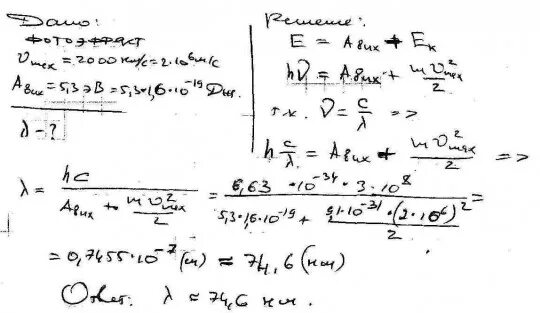 Дано:
фотоэффект
υmax = 2000 км/с = 2·10⁶ м/с
Aвых = 5,3 эВ = 5,3·1,6·10⁻¹⁹ Дж.
λ - ?
Решение:
E = Aвых + Eк
hν = Aвых + mυ²max/2
т.к. ν = c/λ =>
h c/λ = Aвых + mυ²max/2 =>
λ = hc/(Aвых + mυ²max/2) = 6,63 · 10⁻³⁴ · 3 · 10⁸/(5,3·1,6·10⁻¹⁹ + 9,1·10⁻³¹·(2·10⁶)²/2) =
= 0,7455·10⁻⁷ (м) ≈ 74,6 (нм)
Ответ: λ ≈ 74,6 нм.